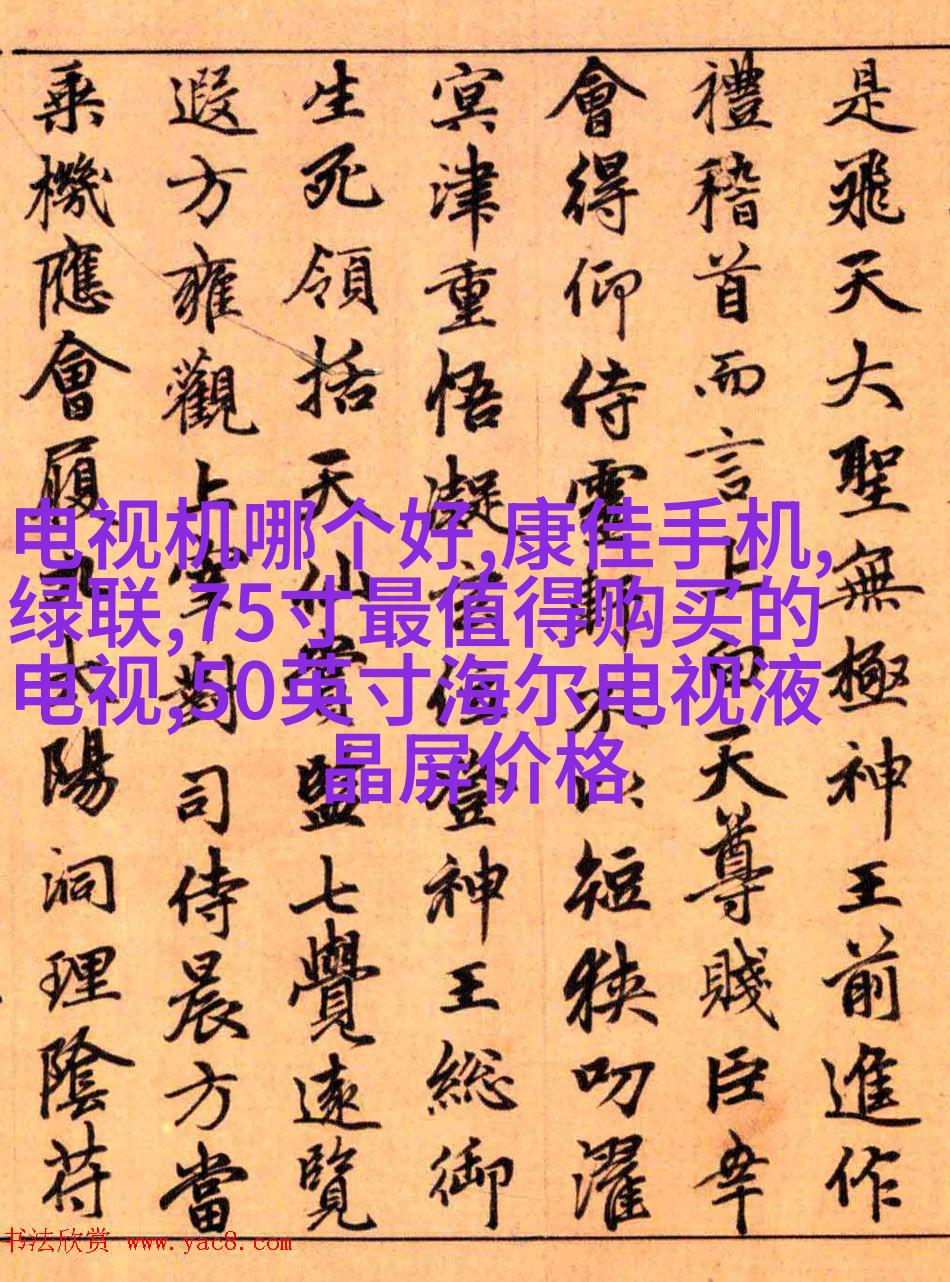 是飛天大聖無極神王前進作
禮稽首而言上白天尊賤臣幸
會得仰侍靈短狹叨濯
冥津重悟凝神王総御
生死領括天仙監七覺遠覽
遐方雍觀上對司侍晨方當
乘機應會履陽洞理陰荷
电视机哪个好,康佳手机,
绿联,75寸最值得购买的
电视,50英寸海尔电视液
晶屏价格
书法欣赏 www.yac8.com